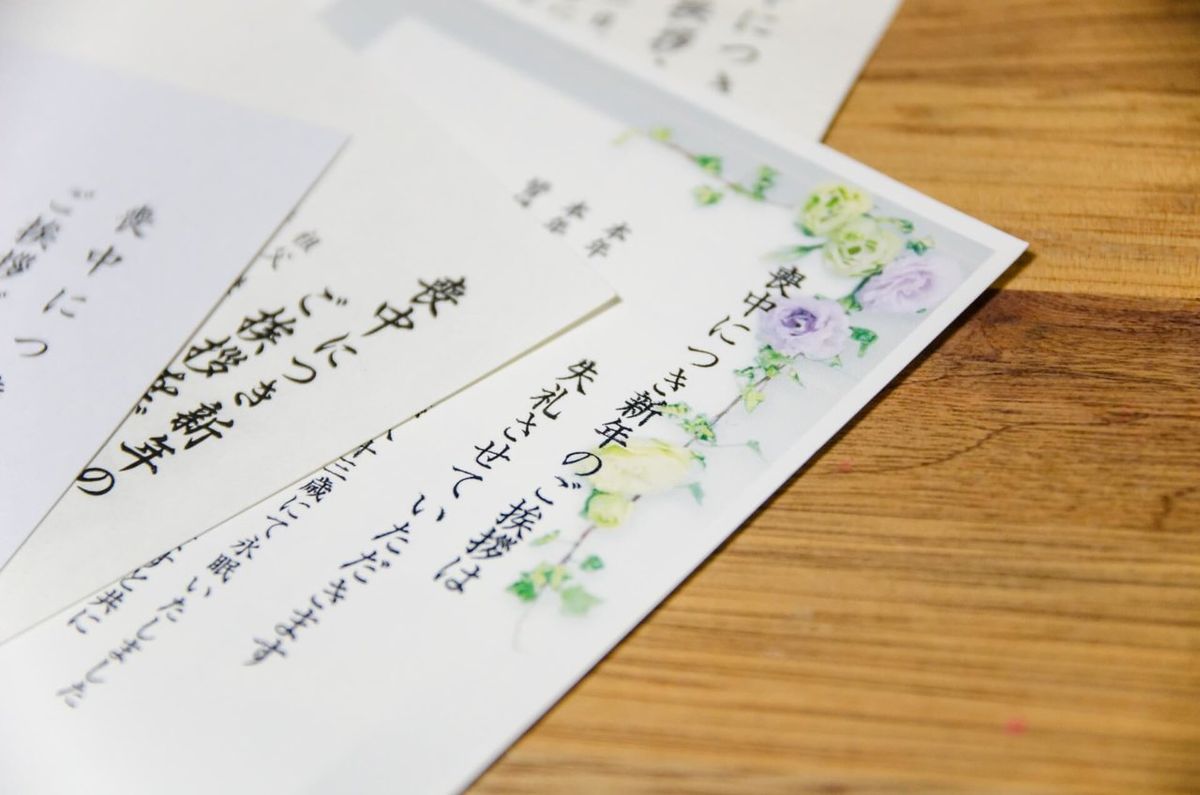 喪中につき新年のご挨拶は
失礼させていただきます
本年
本年
十三歳にて永眠いたしました
と共に
喪中につき新年の
ご挨拶をご
祖父
喪中につ
ご挨拶
につき